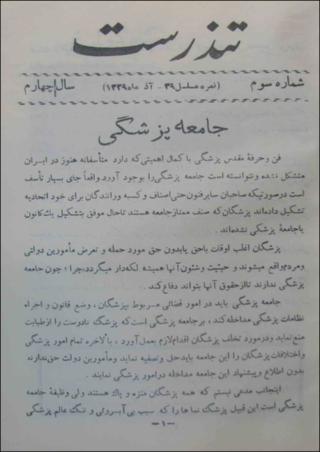 تندرست
شماره سوم (نمره مسلسل ۳۹- آذر ماه ۱۳۲۹) سال چهارم
جامعه پزشگی
فن و حرفهٔ مقدس پزشگی با کمال اهمیتی که دارد متأسفانه هنوز در ایران
متشکل نشده و نتوانسته است جامعه پزشگی را بوجود آورد واقعاً جای بسیار تأسف
است در صورتیکه صاحبان سایر فنون حتی اصناف و کسبه و رانندگان برای خود اتحادیه
تشکیل داده‌اند پزشگان که صنف ممتاز جامعه هستند تا حال موفق بتشکیل یک کانون
یا جامعهٔ پزشگی نشده‌اند.
پزشگان اغلب اوقات با حق یا بدون حق مورد حمله و تعرض مأمورین دولتی
و مردم واقع میشوند و حیثیت و شئون آنها همیشه لکه‌دار میگردد، چرا؛ چون جامعه
پزشگی ندارند تا از حقوق آنها بتواند دفاع کند.
جامعه پزشگی باید در امور قضائی مربوط بپزشگان، وضع قانون و اجراء
نظامات پزشگی مداخله کند، بر جامعه پزشگی است که پزشگ نادرست را از طبابت
منع نماید و در مورد تخلف پزشگان اقدام لازم بعمل آورد، بالاخره تمام امور پزشگی
و اختلافات پزشگان را این جامعه باید حل و تصفیه نماید و مأمورین دولت حق ندارند
بدون اطلاع و پیشنهاد این جامعه مداخله در امور پزشگی نمایند.
اینجانب مدعی نیستم که همه پزشگان منزه و پاک هستند ولی وظیفهٔ جامعه
پزشگی است این قبیل پزشگ نماها را که سبب بی‌آبروئی و ننگ عالم پزشگی
-۱-